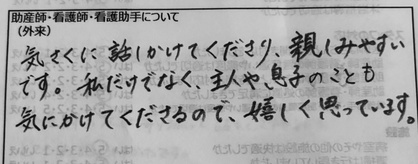 助産師・看護師・看護助手について
(外来)
気さくに話しかけてくださり、親しみやすい
です。私だけでなく、主人や息子のことも
気にかけてくださるので、嬉しく思っています。